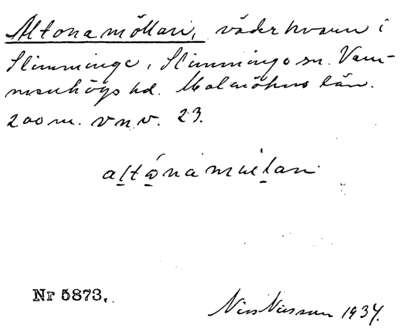 Altona möllan, väderkvarn i
Slimminge, Slimminge sn. Vem-
menhögs hd. Malmöhus län.
200 m. v n v. 23.
altona
Nr 5873.
Nils Nilsson 1934.